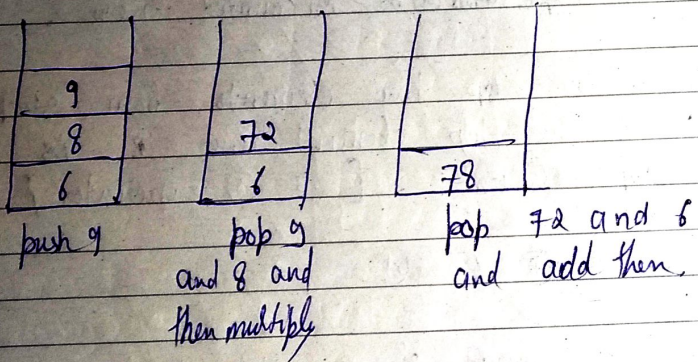 9
8
6
push 9
72
6
pop 9
and 8 and
then multiply
78
pop 72 and 6
and add then.